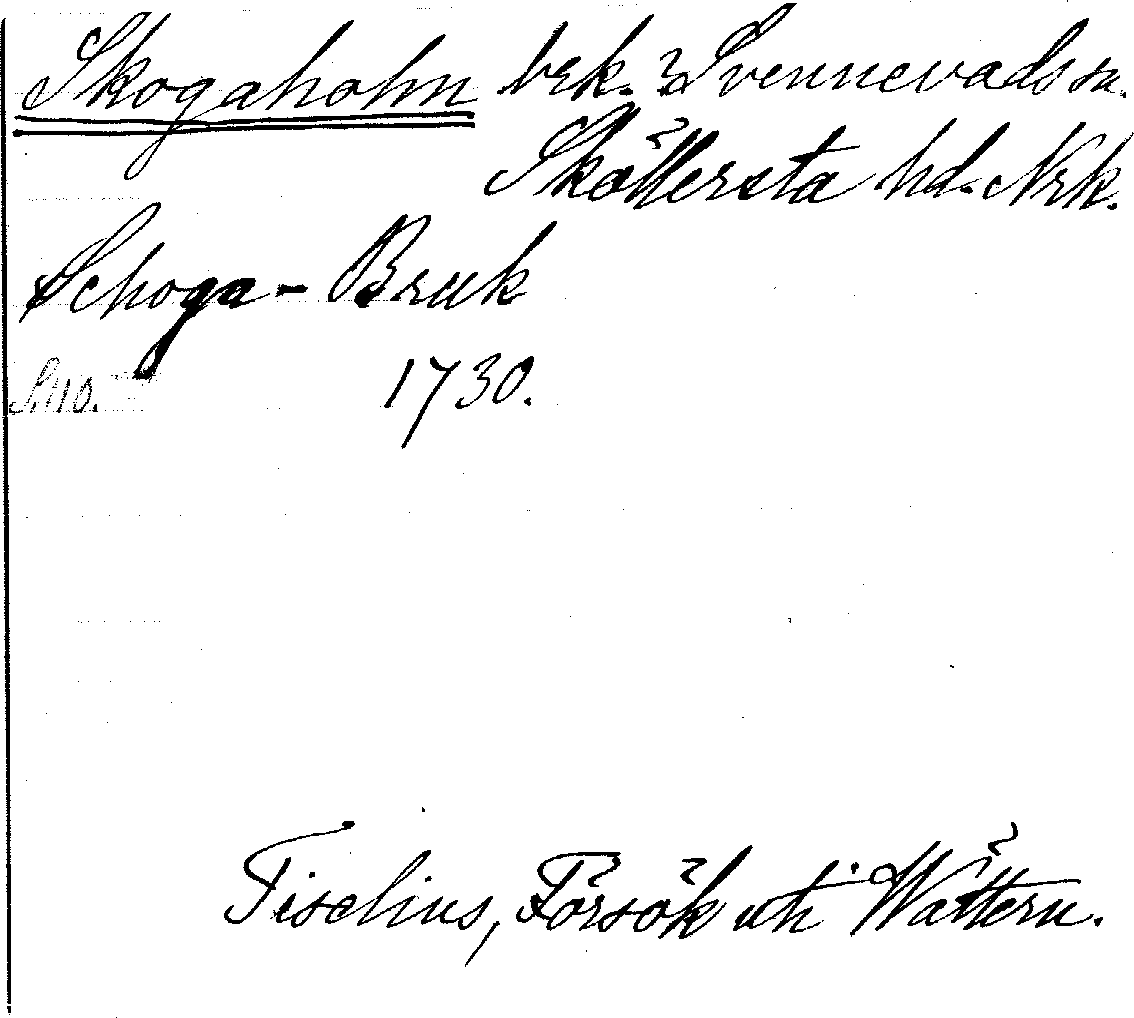 Skogaholm brk. Svennevads sn.
Sköllersta hd. Nrk.
Schoga-Bruk
S. 110. 1730.
Tiselius, Försök uti Wättern.